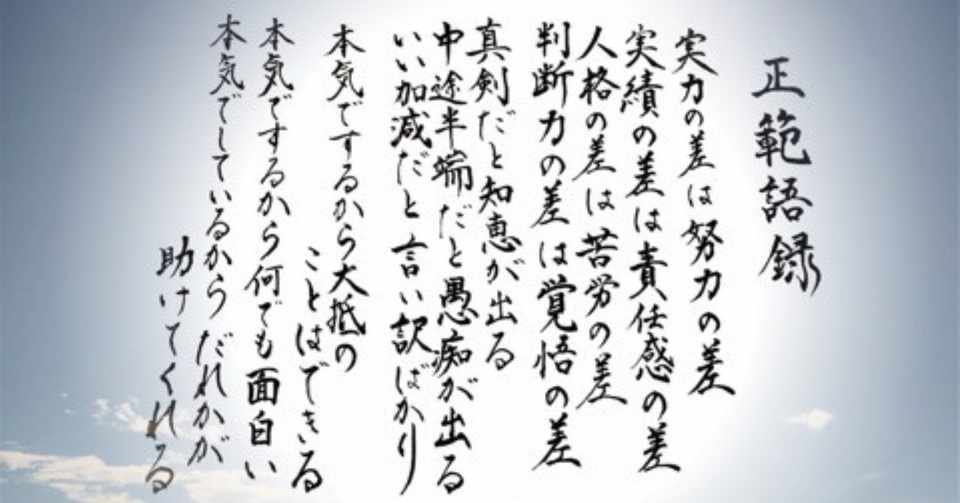 正範語録
実力の差は努力の差
実績の差は責任感の差
人格の差は苦労の差
判断力の差は覚悟の差
真剣だと知恵が出る
中途半端だと愚痴が出る
いい加減だと言い訳ばかり
本気でするから大抵の
ことはできる
本気でするから何でも面白い
本気でしているからだれかが
助けてくれる